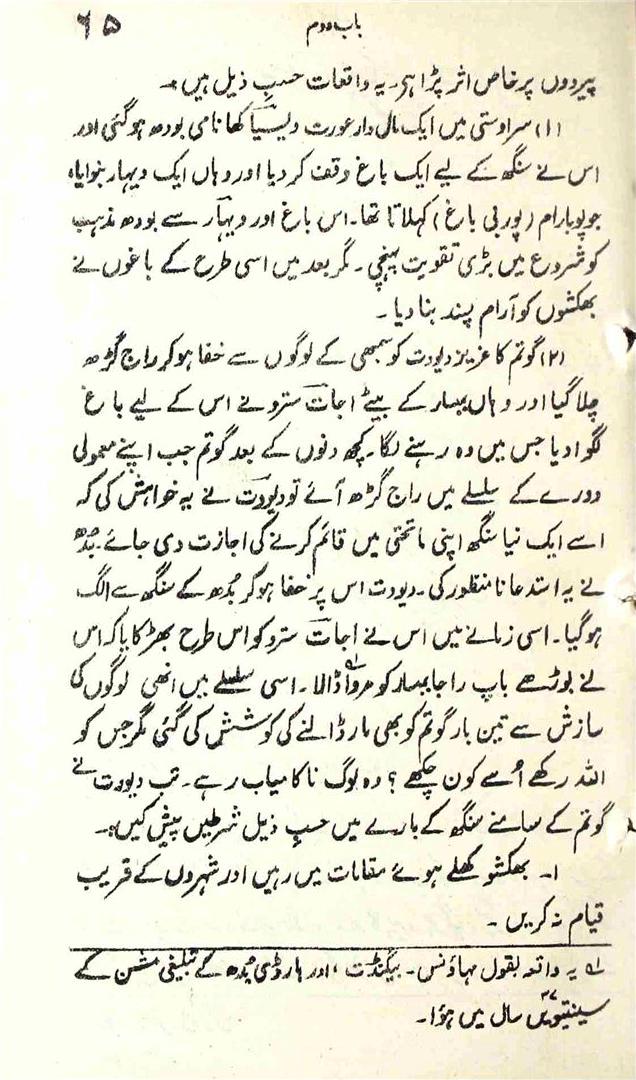 باب دوم
۶۵
پیردوں پر خاص اثر پڑا ہی۔ یہ واقعات حسبِ ذیل ہیں:۔
(۱) سراوستی میں ایک مال دار عورت ویسیا کھا نامی بودھ ہو گئی اور
اس نے سنگھ کے لیے ایک باغ وقف کر دیا اور وہاں ایک ویہار بنوایا،
جو پوبارام (پوربی باغ) کہلاتا تھا۔ اس باغ اور ویہار سے بودھ مذہب
کو شروع میں بڑی تقویت پہنچی۔ مگر بعد میں اسی طرح کے باغوں نے
بھکشوں کو آرام پسند بنا دیا۔
(۲) گوتم کا عزیز دیودت کوسمبھی کے لوگوں سے خفا ہو کر راج گڑھ
چلا گیا اور وہاں بمبسار کے بیٹے اجات سترو نے اس کے لیے باغ
لگوا دیا جس میں وہ رہنے لگا۔ کچھ دنوں کے بعد گوتم جب اپنے معمولی
دورے کے سلسلے میں راج گڑھ آئے تو دیودت نے یہ خواہش کی کہ
اسے ایک نیا سنگھ اپنی ماتحتی میں قائم کرنے کی اجازت دی جائے۔ بُدھ
نے یہ استدعا نامنظور کی۔ دیودت اس پر خفا ہو کر بُدھ کے سنگھ سے الگ
ہو گیا۔ اسی زمانے میں اس نے اجات سترو کو اس طرح بھڑکایا کہ اس
نے بوڑھے باپ راجا بمبسار کو مروا ڈالا۔؎۱ اسی سلسلے میں انھی لوگوں کی
سازش سے تین بار گوتم کو بھی مار ڈالنے کی کوشش کی گئی مگر جس کو
اللہ رکھے اُسے کون چکھے؟ وہ لوگ ناکامیاب رہے۔ تب دیودت نے
گوتم کے سامنے سنگھ کے بارے میں حسبِ ذیل شرطیں پیش کیں:۔
۱۔ بھکشو کھلے ہوئے مقامات میں رہیں اور شہروں کے قریب
قیام نہ کریں۔
؎۱ یہ واقعہ بقول مہاؤنس۔ بیگنڈٹ، اور ہارڈی بُدھ کے تبلیغی مشن کے
سینتیسویں۳۷ سال میں ہؤا۔